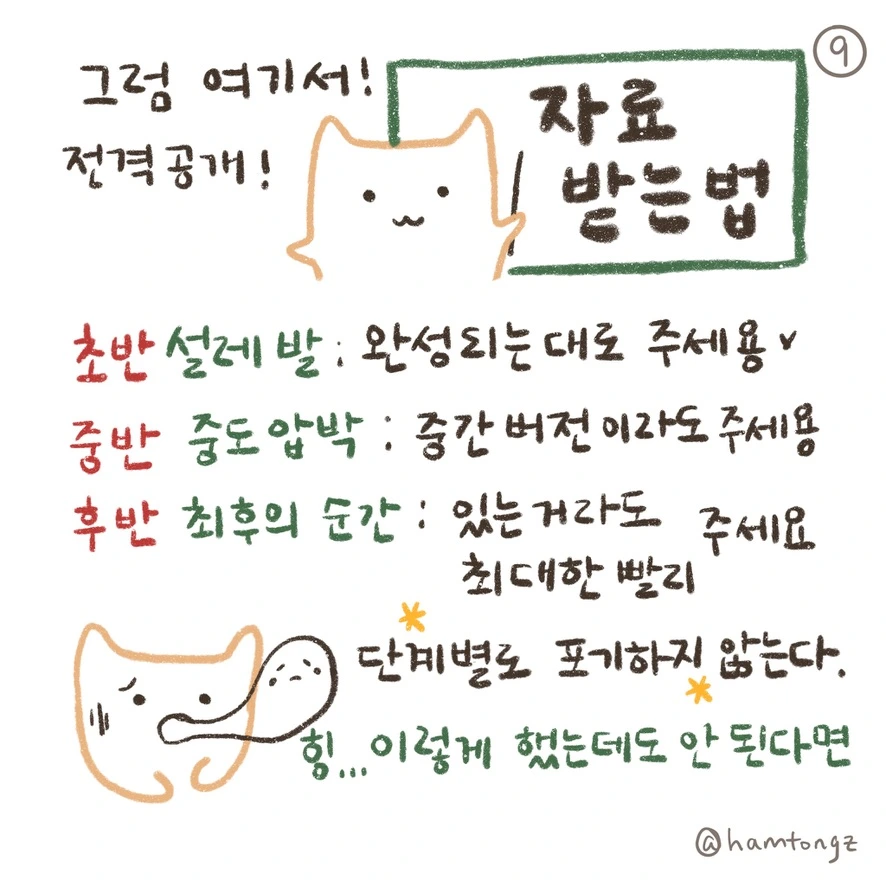 ⑨
그럼 여기서!
전격공개!
자료
받는법
초반 설레발 : 완성되는대로 주세용v
중반 중도압박 : 중간버전이라도 주세용
후반 최후의 순간 : 있는거라도
최대한 빨리 주세요
단계별로 포기하지 않는다.
힝...이렇게 했는데도 안 된다면
@hamtongz